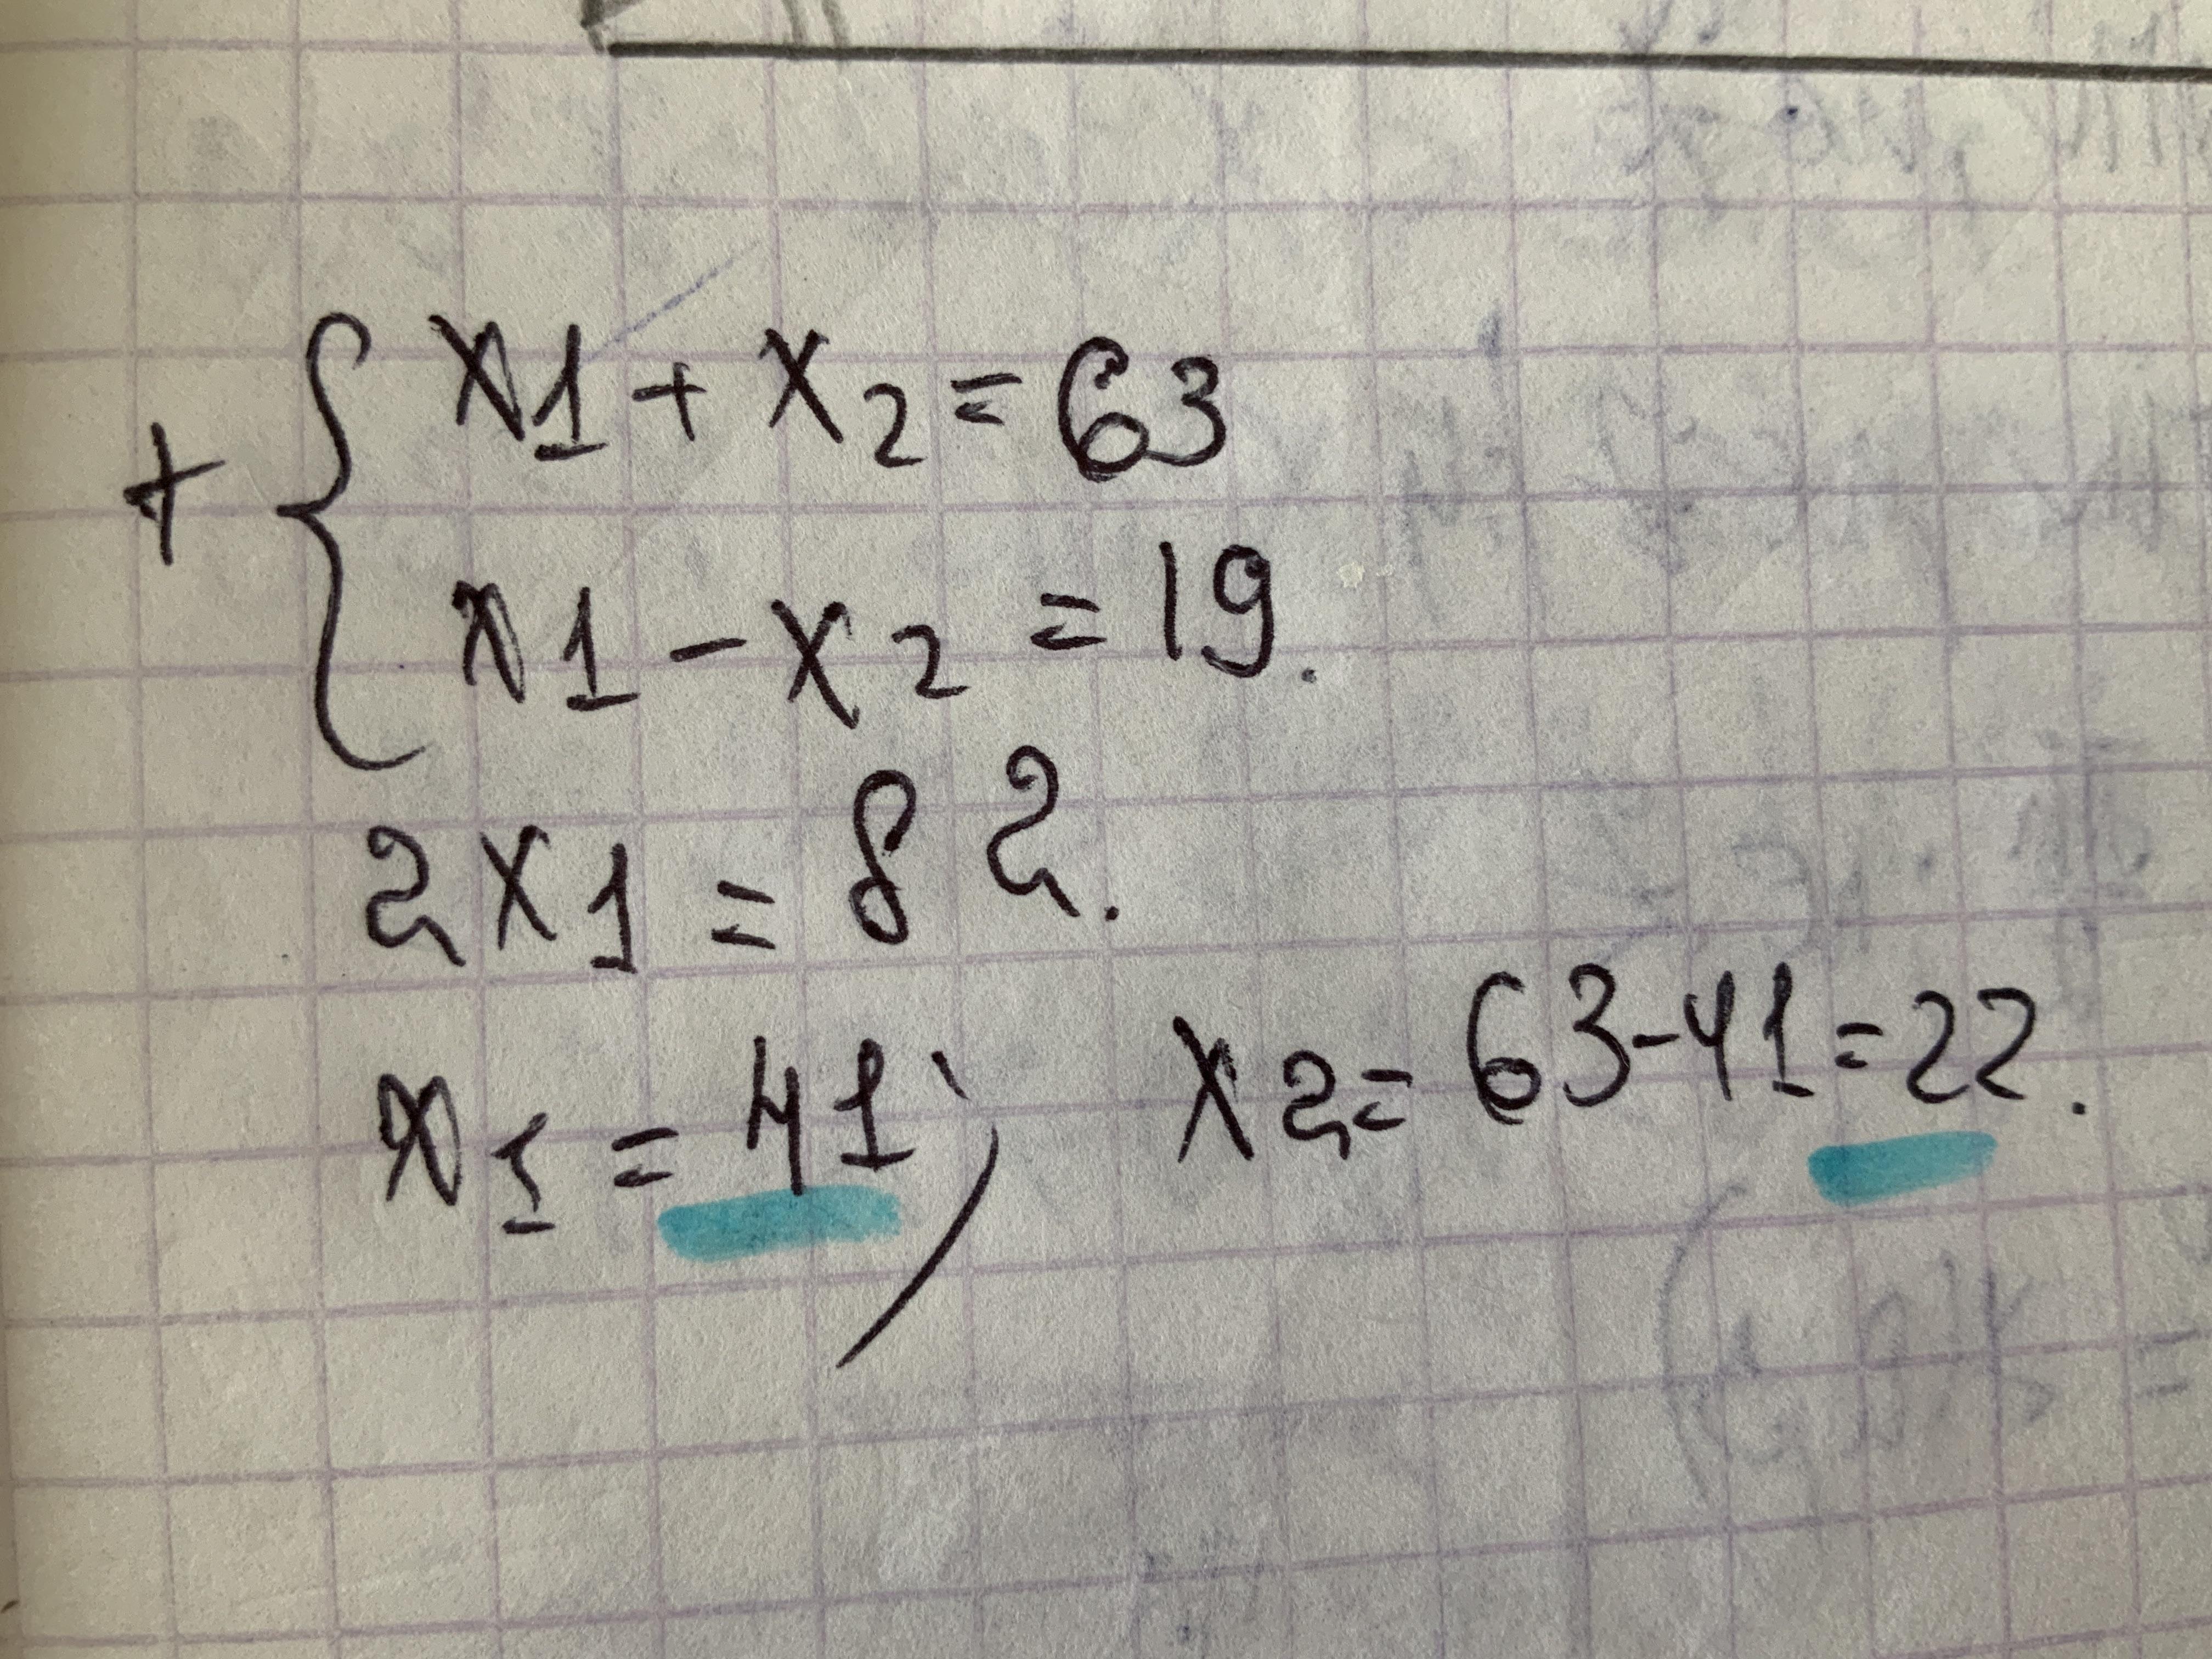 + { x1 + x2 = 63
x1 - x2 = 19.
2x1 = 82.
x1 = 41; x2 = 63-41=22.